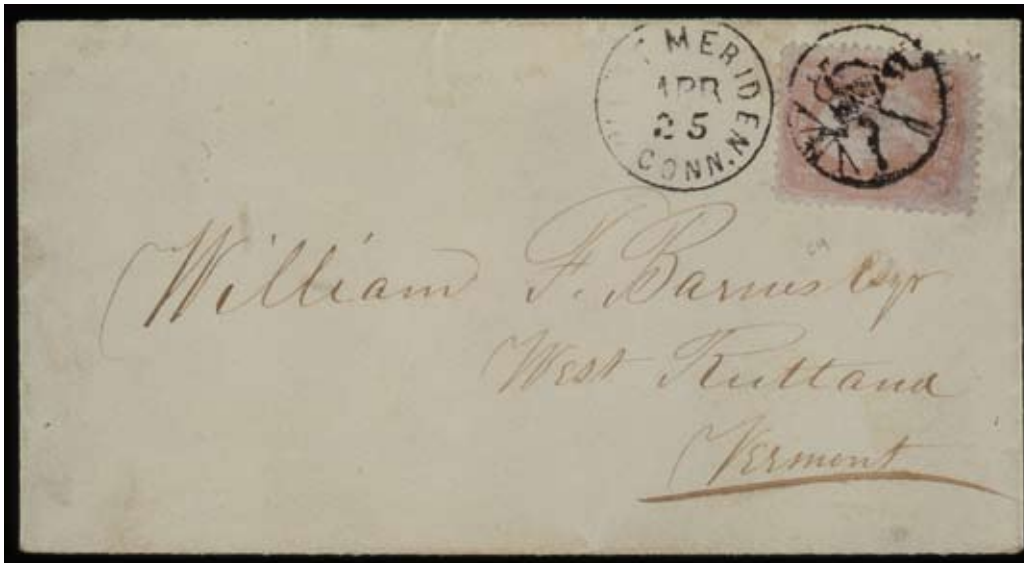 MERIDEN
APR
25
CONN.
William F. Barnes Esqr
West Rutland
Vermont